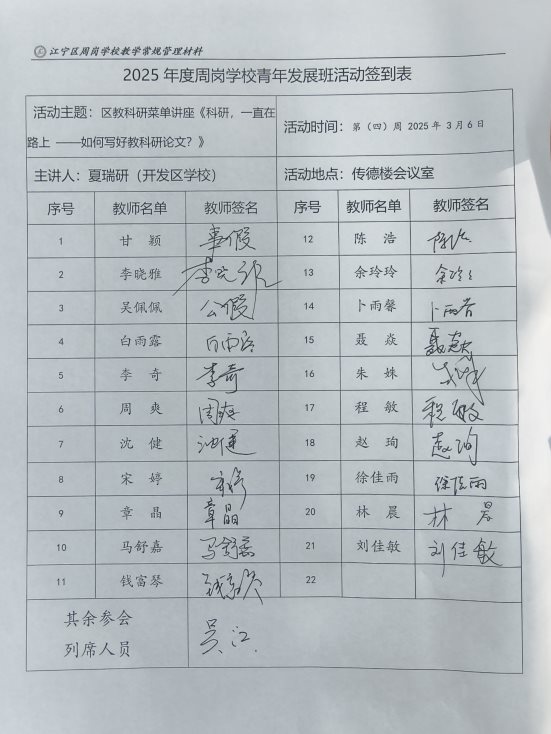 江宁区周岗学校教学常规管理材料
2025 年度周岗学校青年发展班活动签到表
活动主题：区教科研菜单讲座《科研，一直在
路上 ——如何写好教科研论文？》
活动时间：第（四）周 2025 年 3 月 6 日
主讲人：夏瑞研（开发区学校） 活动地点：传德楼会议室
序号 教师名单 教师签名 序号 教师名单 教师签名
1 甘 颖 事假 12 陈 浩 陈浩
2 李晓雅 李晓雅 13 余玲玲 余玲玲
3 吴佩佩 公假 14 卜雨馨 卜雨香
4 白雨露 白雨露 15 聂 焱 聂焱
5 李 奇 李奇 16 朱 姝 朱姝
6 周 爽 周爽 17 程 敏 程敏
7 沈 健 沈健 18 赵 珣 赵珣
8 宋 婷 宋婷 19 徐佳雨 徐佳雨
9 章 晶 章晶 20 林 晨 林 晨
10 马舒嘉 马舒嘉 21 刘佳敏 刘佳敏
11 钱富琴 钱富琴 22
其余参会
列席人员
吴江.